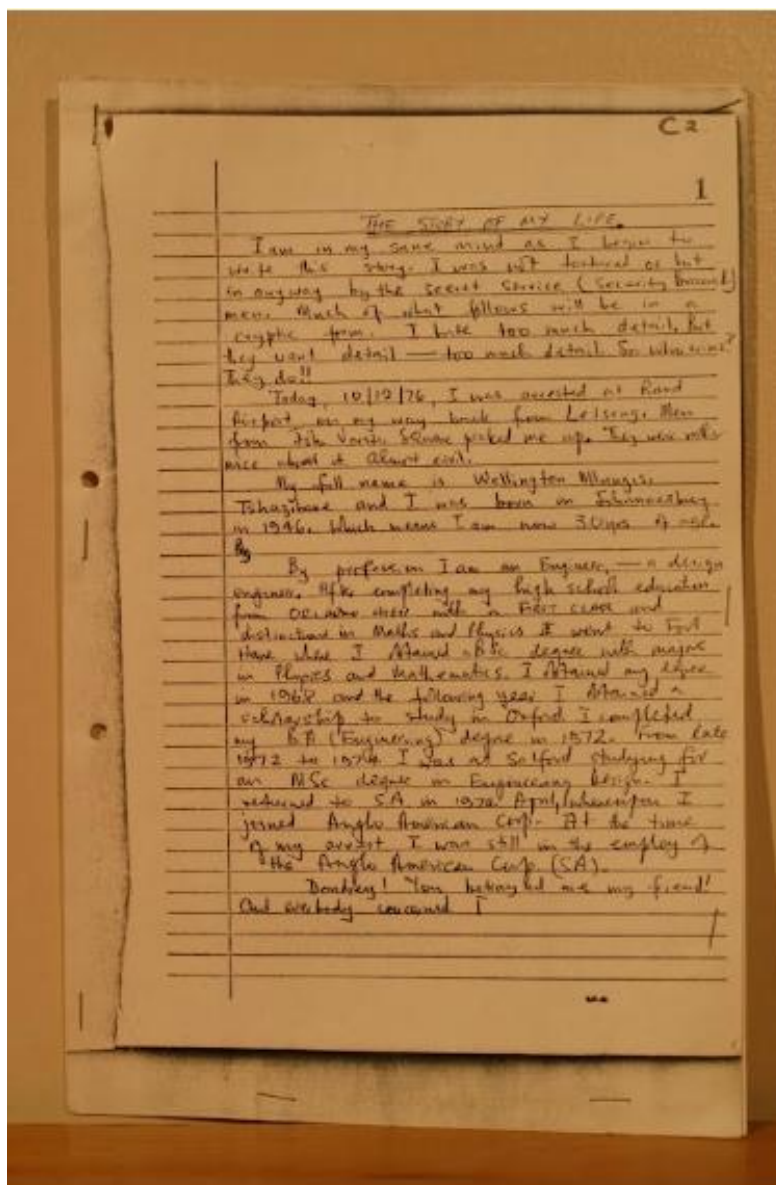 C2
1
THE STORY OF MY LIFE.
I am in my sane mind as I begin to
write this story. I was not tortured or hit
in anyway by the secret service (Security Branch)
men. Much of what follows will be in a
cryptic form. I hate too much detail, but
they want detail — too much detail. So who wins?
They do!!
Today, 10/12/76, I was arrested at Rand
Airport on my way back from Letseng. Men
from John Vorster Square picked me up. They were
nice about it almost civil.
My full name is Wellington Mlungisi
Tshazibane and I was born in Johannesburg
in 1946. Which means I am now 30yrs of age.
By
By profession I am an Engineer, — a design
engineer. After completing my high school education
from Orlando with a FIRST CLASS and
distinctions in Maths and Physics I went to Fort
Hare where I attained a BSc degree with majors
in Physics and Mathematics. I attained my degree
in 1968 and the following year I attained a
scholarship to study in Oxford I completed
my BA (Engineering) degree in 1972. From late
1972 to 1974 I was at Salford studying for
an MSc degree in Engineering Design. I
returned to S.A in April, whereupon I
joined Anglo American Corp. At the time
of my arrest I was still in the employ of
the Anglo American Corp. (SA).
You betrayed me my friend!
And everybody concerned I